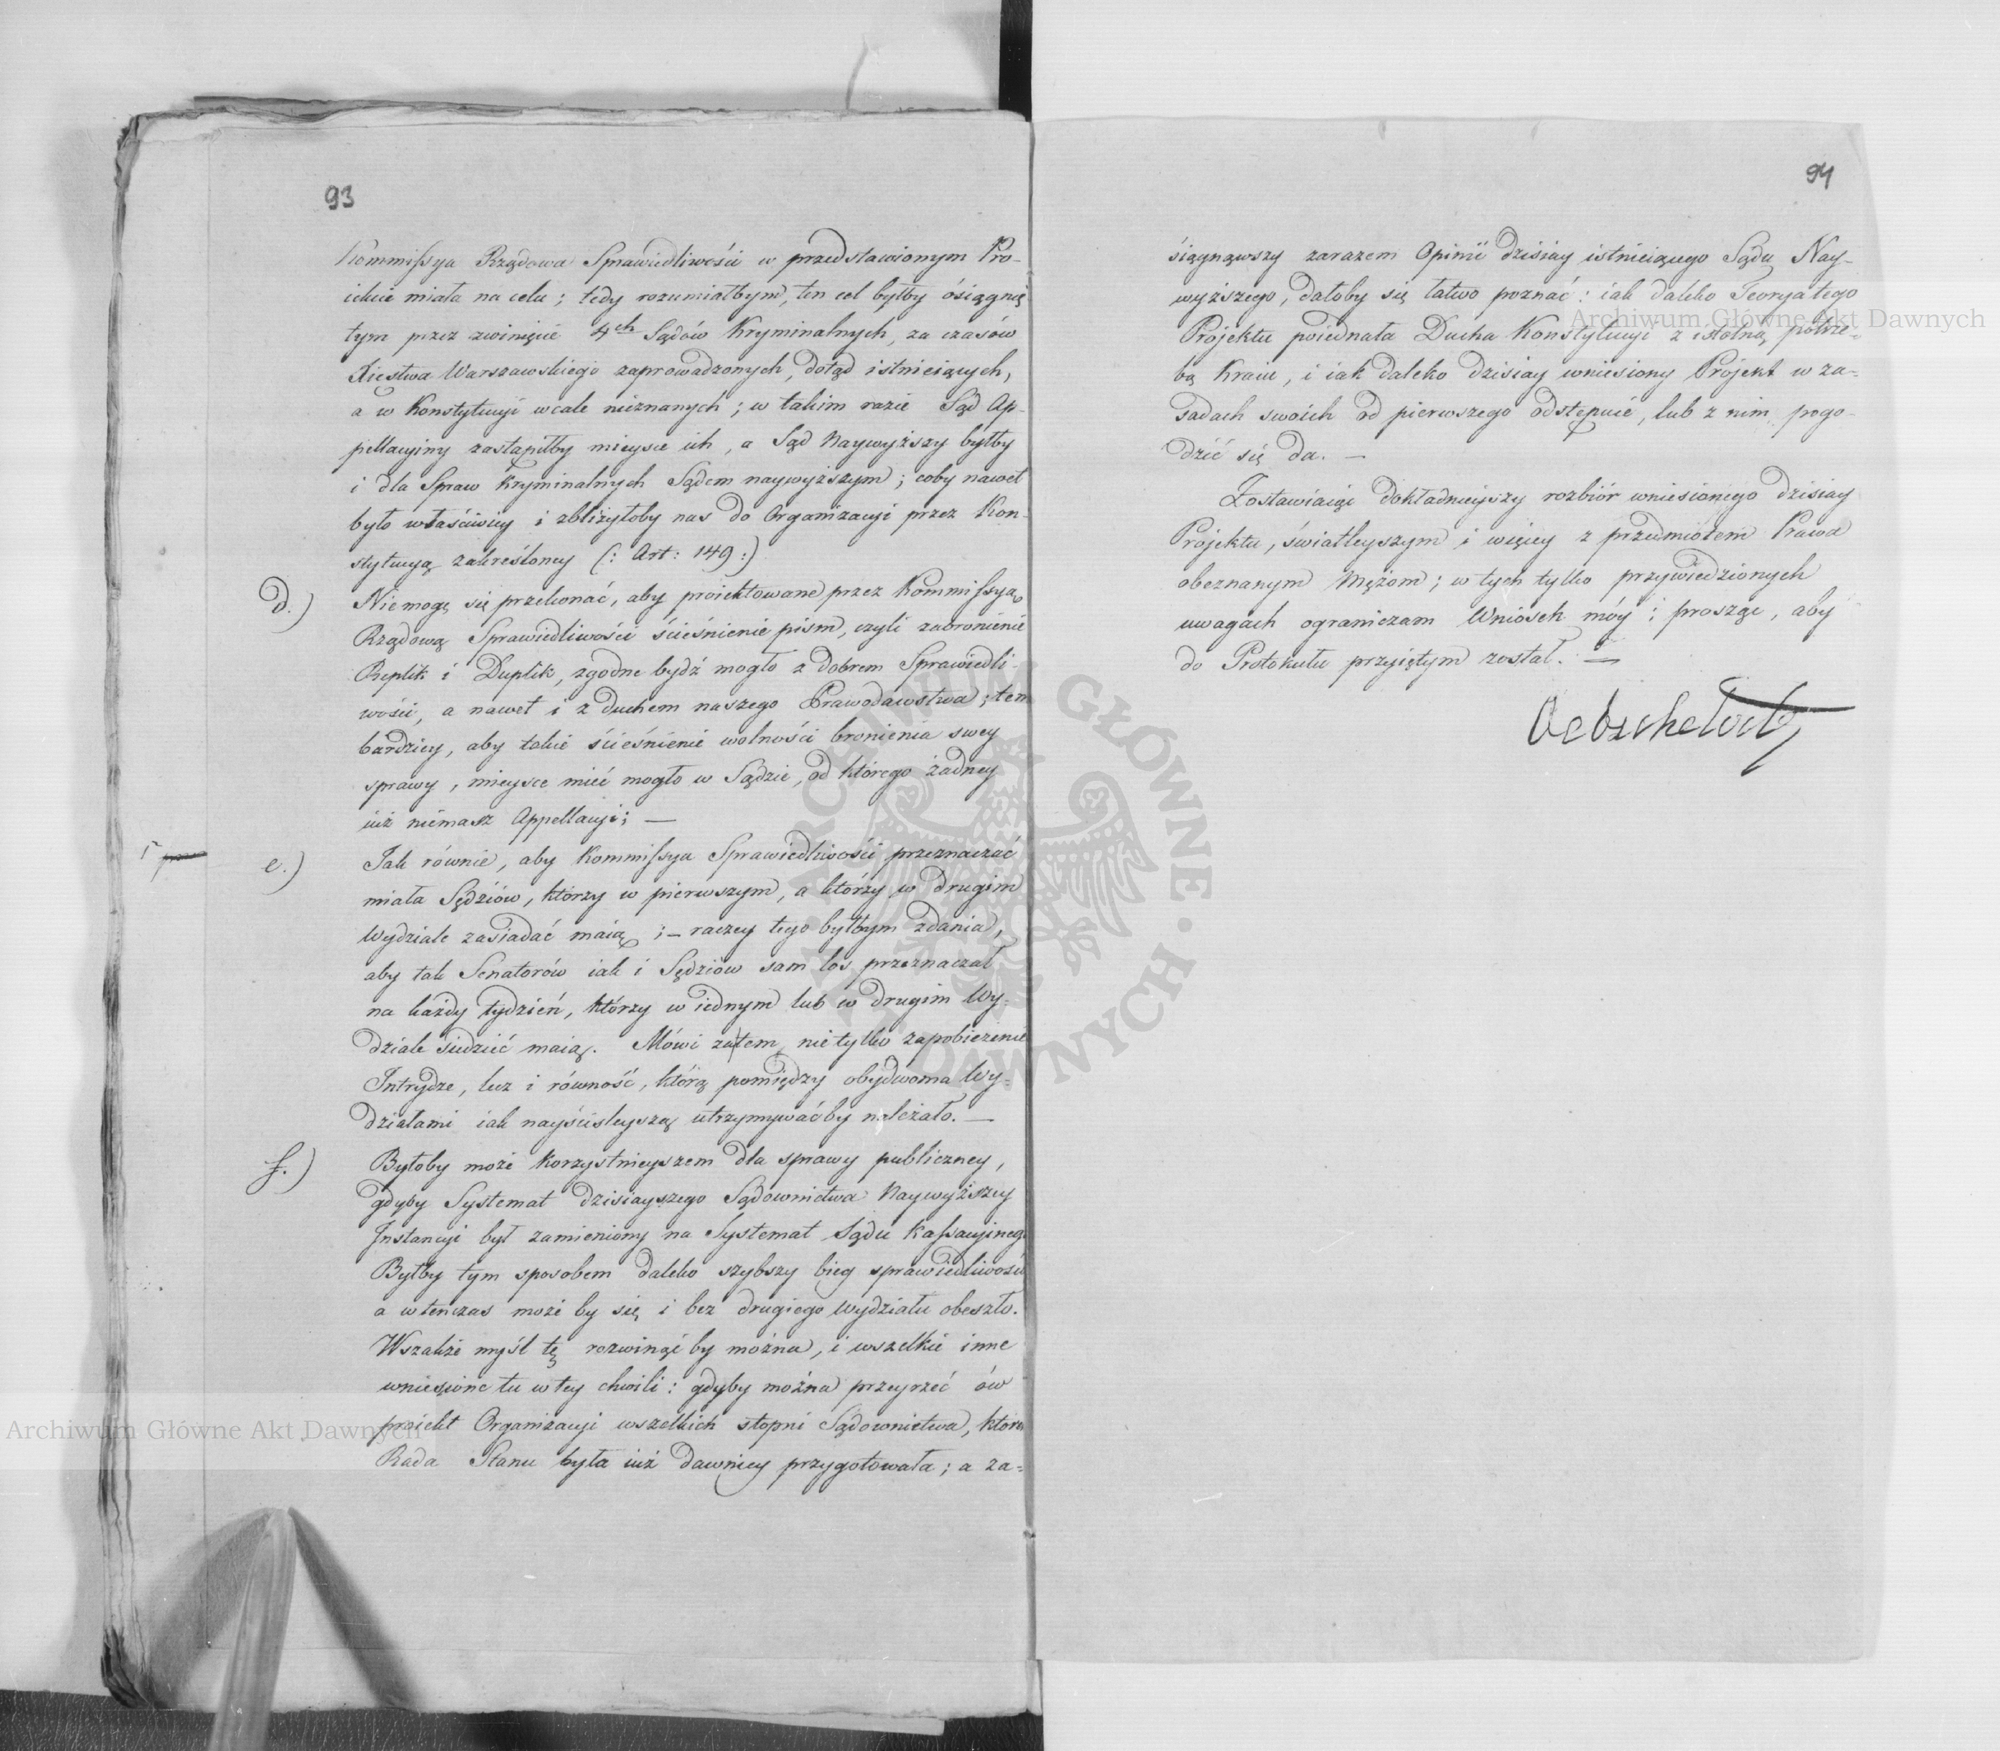 93
Kommissya Rządowa Sprawiedliwości w przedstawionym Pro-
iekcie miała na celu; tedy rozumiałbym, ten cel byłby osiągnię
tym przez zwinięcie 4ch Sądów Kryminalnych, za czasów
Xięstwa Warszawskiego zaprowadzonych, dotąd istnieiących,
a w Konstytucyi wcale nieznanych; w takim razie Sąd Ap-
pellacyiny zastąpiłby mieysce ich, a Sąd Naywyższy byłby
i dla Spraw Kryminalnych Sądem naywyższym; coby nawet
było właściwiey i zbliżyłoby nas do Organizacyi przez Kon-
stytucyą zakreśloney (: Art: 149:)
d.) Nie mogę się przekonać, aby proiektowane przez Kommissyą
Rządową Sprawiedliwości ścieśnienie pism, czyli zabronienie
Replik i Duplik, zgodne bydź mogło z dobrem Sprawiedli-
wości, a nawet i z duchem naszego Prawodawstwa; tem
bardziey, aby takie ścieśnienie wolności bronienia swey
sprawy, mieysce mieć mogło w Sądzie, od którego żadney
iuż niemasz Appellacyi; —
e.) Jak równie, aby Kommissya Sprawiedliwości przeznaczać
miała Sędziów, którzy w pierwszym, a którzy w drugim
Wydziale zasiadać maią; – raczey tego byłbym zdania,
aby tak Senatorów iak i Sędziów sam los przeznaczał
na każdy tydzień, którzy w iednym lub w drugim Wy-
dziale siedzieć maią. Mówi zatem nie tylko zapobieżenie
Intrydze, lecz i równość, którą pomiędzy obydwoma Wy-
działami iak nayściśleyszą utrzymywać by należało. —
f.) Byłoby może korzystnieyszem dla sprawy publiczney,
gdyby Systemat dzisiayszego Sądownictwa Naywyższey
Instancyi był zamieniony na Systemat Sądu Kassacyineg
Byłby tym sposobem daleko szybszy bieg sprawiedliwości
a wtenczas może by się i bez drugiego Wydziału obeszło.
Wszakże myśl tę rozwinąć by można, i wszelkie inne
wniesione tu w tey chwili: gdyby można przeyrzeć ów
proiekt Organizacyi wszelkich stopni Sądownictwa, który
Rada Stanu była iuż dawniey przygotowała; a za-
94
siągnąwszy zarazem Opinii dzisiay istnieiącego Sądu Nay-
wyższego, dałoby się łatwo poznać: iak daleko Teorya tego
Projektu poiednała Ducha Konstytucyi z istotną potrze-
bą Kraiu, i iak daleko dzisiay wniesiony Projekt w za-
sadach swoich od pierwszego odstępuie, lub z nim pogo-
dzić się da. —
Zostawiaiąc dokładnieyszy rozbiór wniesionego dzisiay
Projektu, światleyszym i więcey z przedmiotem Prawa
obeznanym Mężom; w tych tylko przywiedzionych
uwagach ograniczam Wniosek móy i proszę, aby
do Protokułu przyiętym został. —
Archiwum Główne Akt Dawnych
Archiwum Główne Akt Dawnych
ARCHIWUM GŁÓWNE AKT DAWNYCH